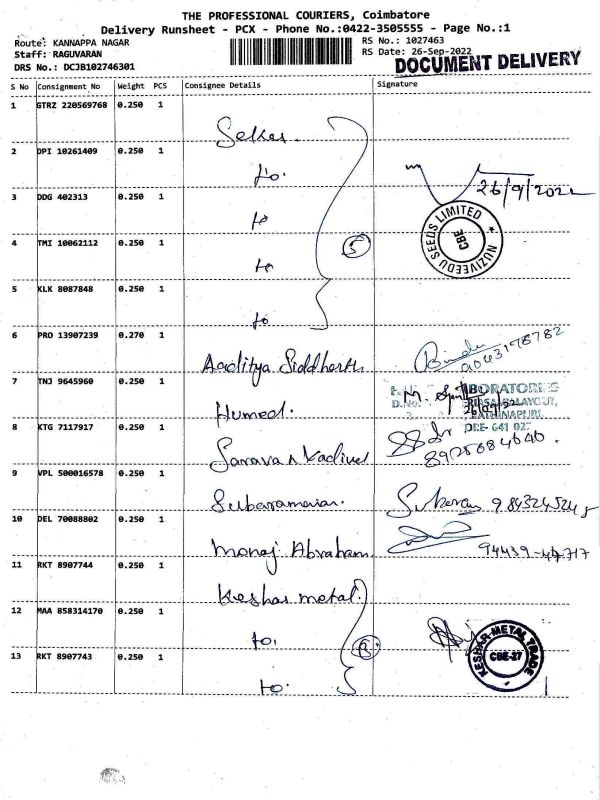 THE PROFESSIONAL COURIERS, Coimbatore
Delivery Runsheet - PCX - Phone No.:0422-3505555 - Page No.:1
Route: KANNAPPA NAGAR
RS No.: 1027463
Staff: RAGUVARAN
RS Date: 26-Sep-2022
DRS No.: DCJB102746301
DOCUMENT DELIVERY
S No Consignment No Weight PCS Consignee Details Signature
1 GTRZ 220569768 0.250 1
Seker
2 DPI 10261409 0.250 1
to.
26/9/2022
3 DDG 402313 0.250 1
to
NUZIVEEDU SEEDS LIMITED
CBE
4 TMI 10062112 0.250 1
to
5
5 KLK 8087848 0.250 1
to
6 PRO 13907239 0.270 1
Aaditya Siddharth
9043178782
7 TNJ 9645960 0.250 1
Humed.
26/09/22
8 KTG 7117917 0.250 1
8925684646.
9 VPL 500016578 0.250 1
Subaramanian.
10 DEL 70088802 0.250 1
Monoj Abraham
11 RKT 8907744 0.250 1
Keshar metal.
12 MAA 858314170 0.250 1
to.
KESHAR METAL TRADE
CBE-27
13 RKT 8907743 0.250 1
to.